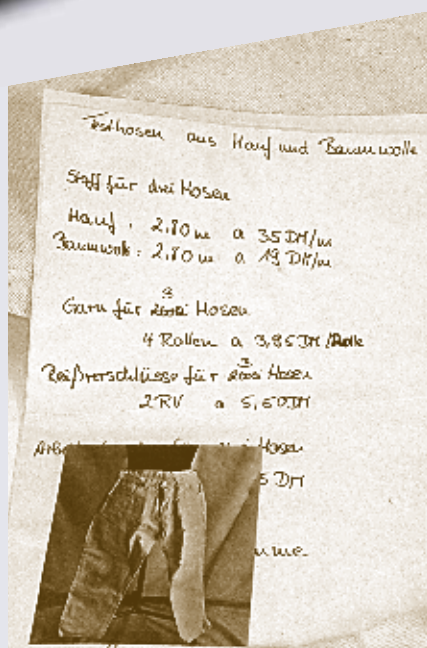 Testhosen aus Hanf und Baumwolle
Stoff für drei Hosen
Hanf : 2,80 m a 35 DM/m
Baumwolle : 2,80 m a 19 DM/m
3
Garn für Hosen
4 Rollen a 3,95 DM/Rolle
3
Reißverschlüsse für Hosen
2 RV a 5,50 DM
für Hosen
5 DM